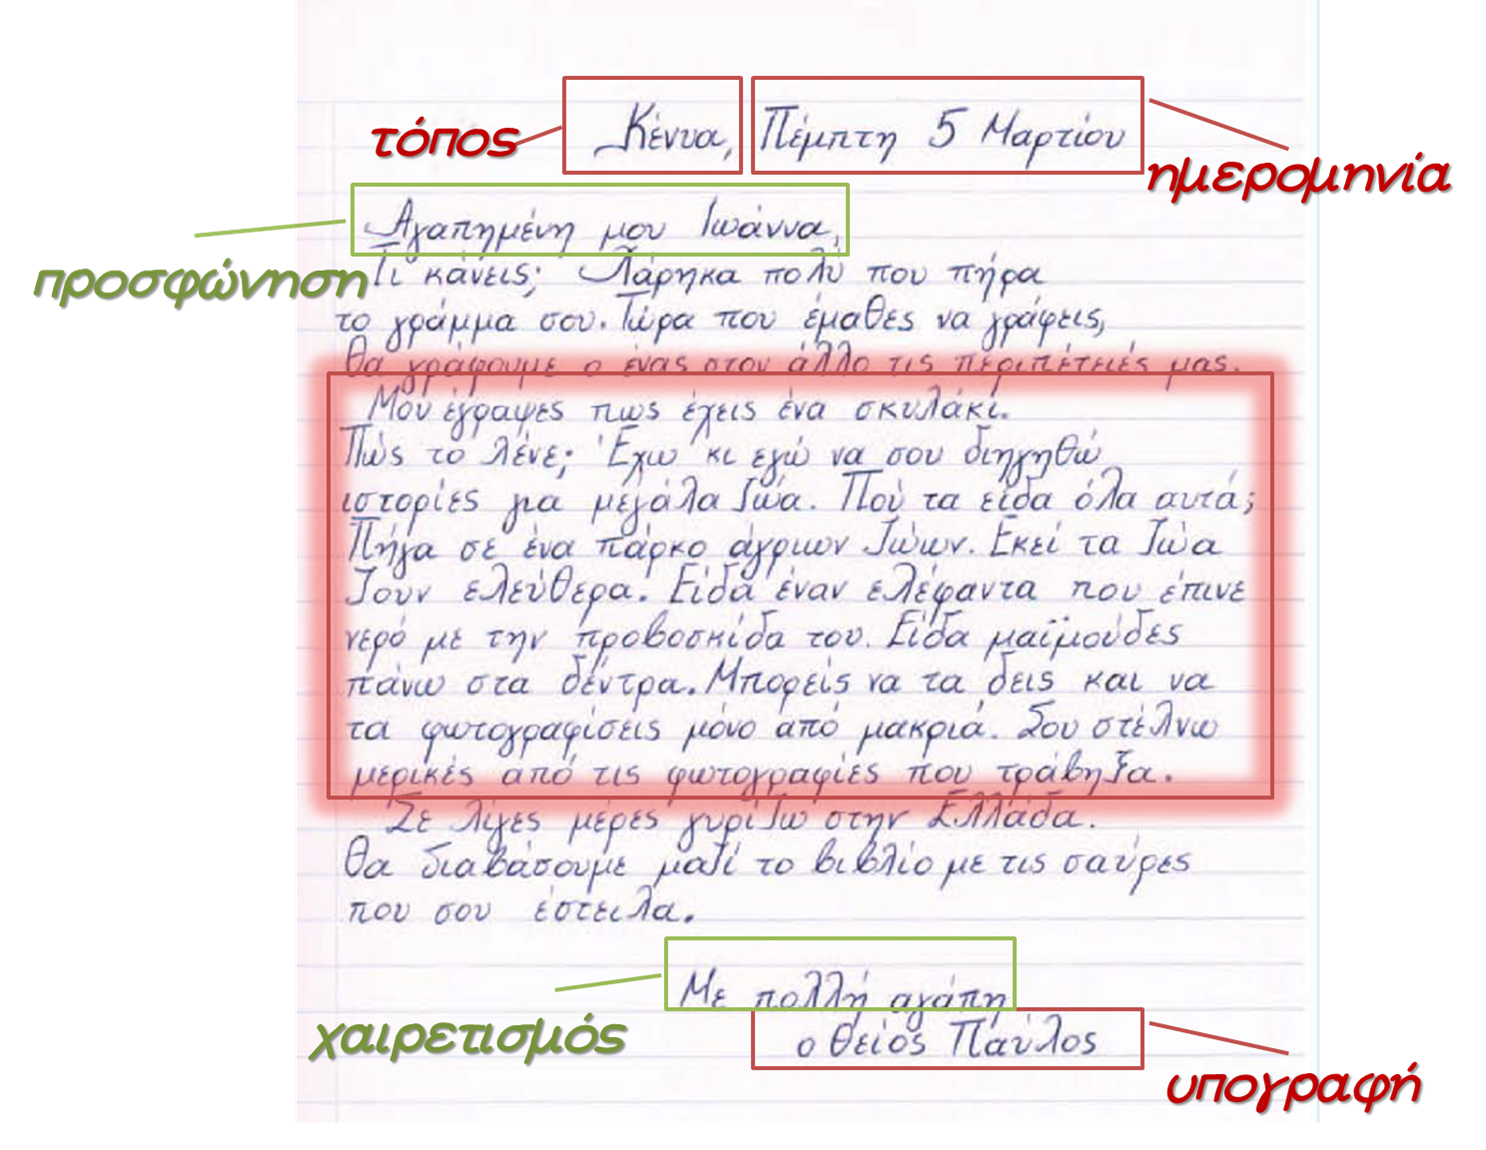 τόπος Κένυα, Πέμπτη 5 Μαρτίου ημερομηνία
Αγαπημένη μου Ιωάννα,
προσφώνηση
Τι κάνεις; Χάρηκα πολύ που πήρα
το γράμμα σου. Τώρα που έμαθες να γράφεις,
θα γράφουμε ο ένας στον άλλο τις περιπέτειές μας.
Μου έγραψες πως έχεις ένα σκυλάκι.
Πώς το λένε; Έχω κι εγώ να σου διηγηθώ
ιστορίες για μεγάλα ζώα. Πού τα είδα όλα αυτά;
Πήγα σε ένα πάρκο άγριων ζώων. Εκεί τα ζώα
ζουν ελεύθερα. Είδα έναν ελέφαντα που έπινε
νερό με την προβοσκίδα του. Είδα μαϊμούδες
πάνω στα δέντρα. Μπορείς να τα δεις και να
τα φωτογραφίσεις μόνο από μακριά. Σου στέλνω
μερικές από τις φωτογραφίες που τράβηξα.
Σε λίγες μέρες γυρίζω στην Ελλάδα.
Θα διαβάσουμε μαζί το βιβλίο με τις σαύρες
που σου έστειλα.
Με πολλή αγάπη
χαιρετισμός
ο θείος Παύλος
υπογραφή